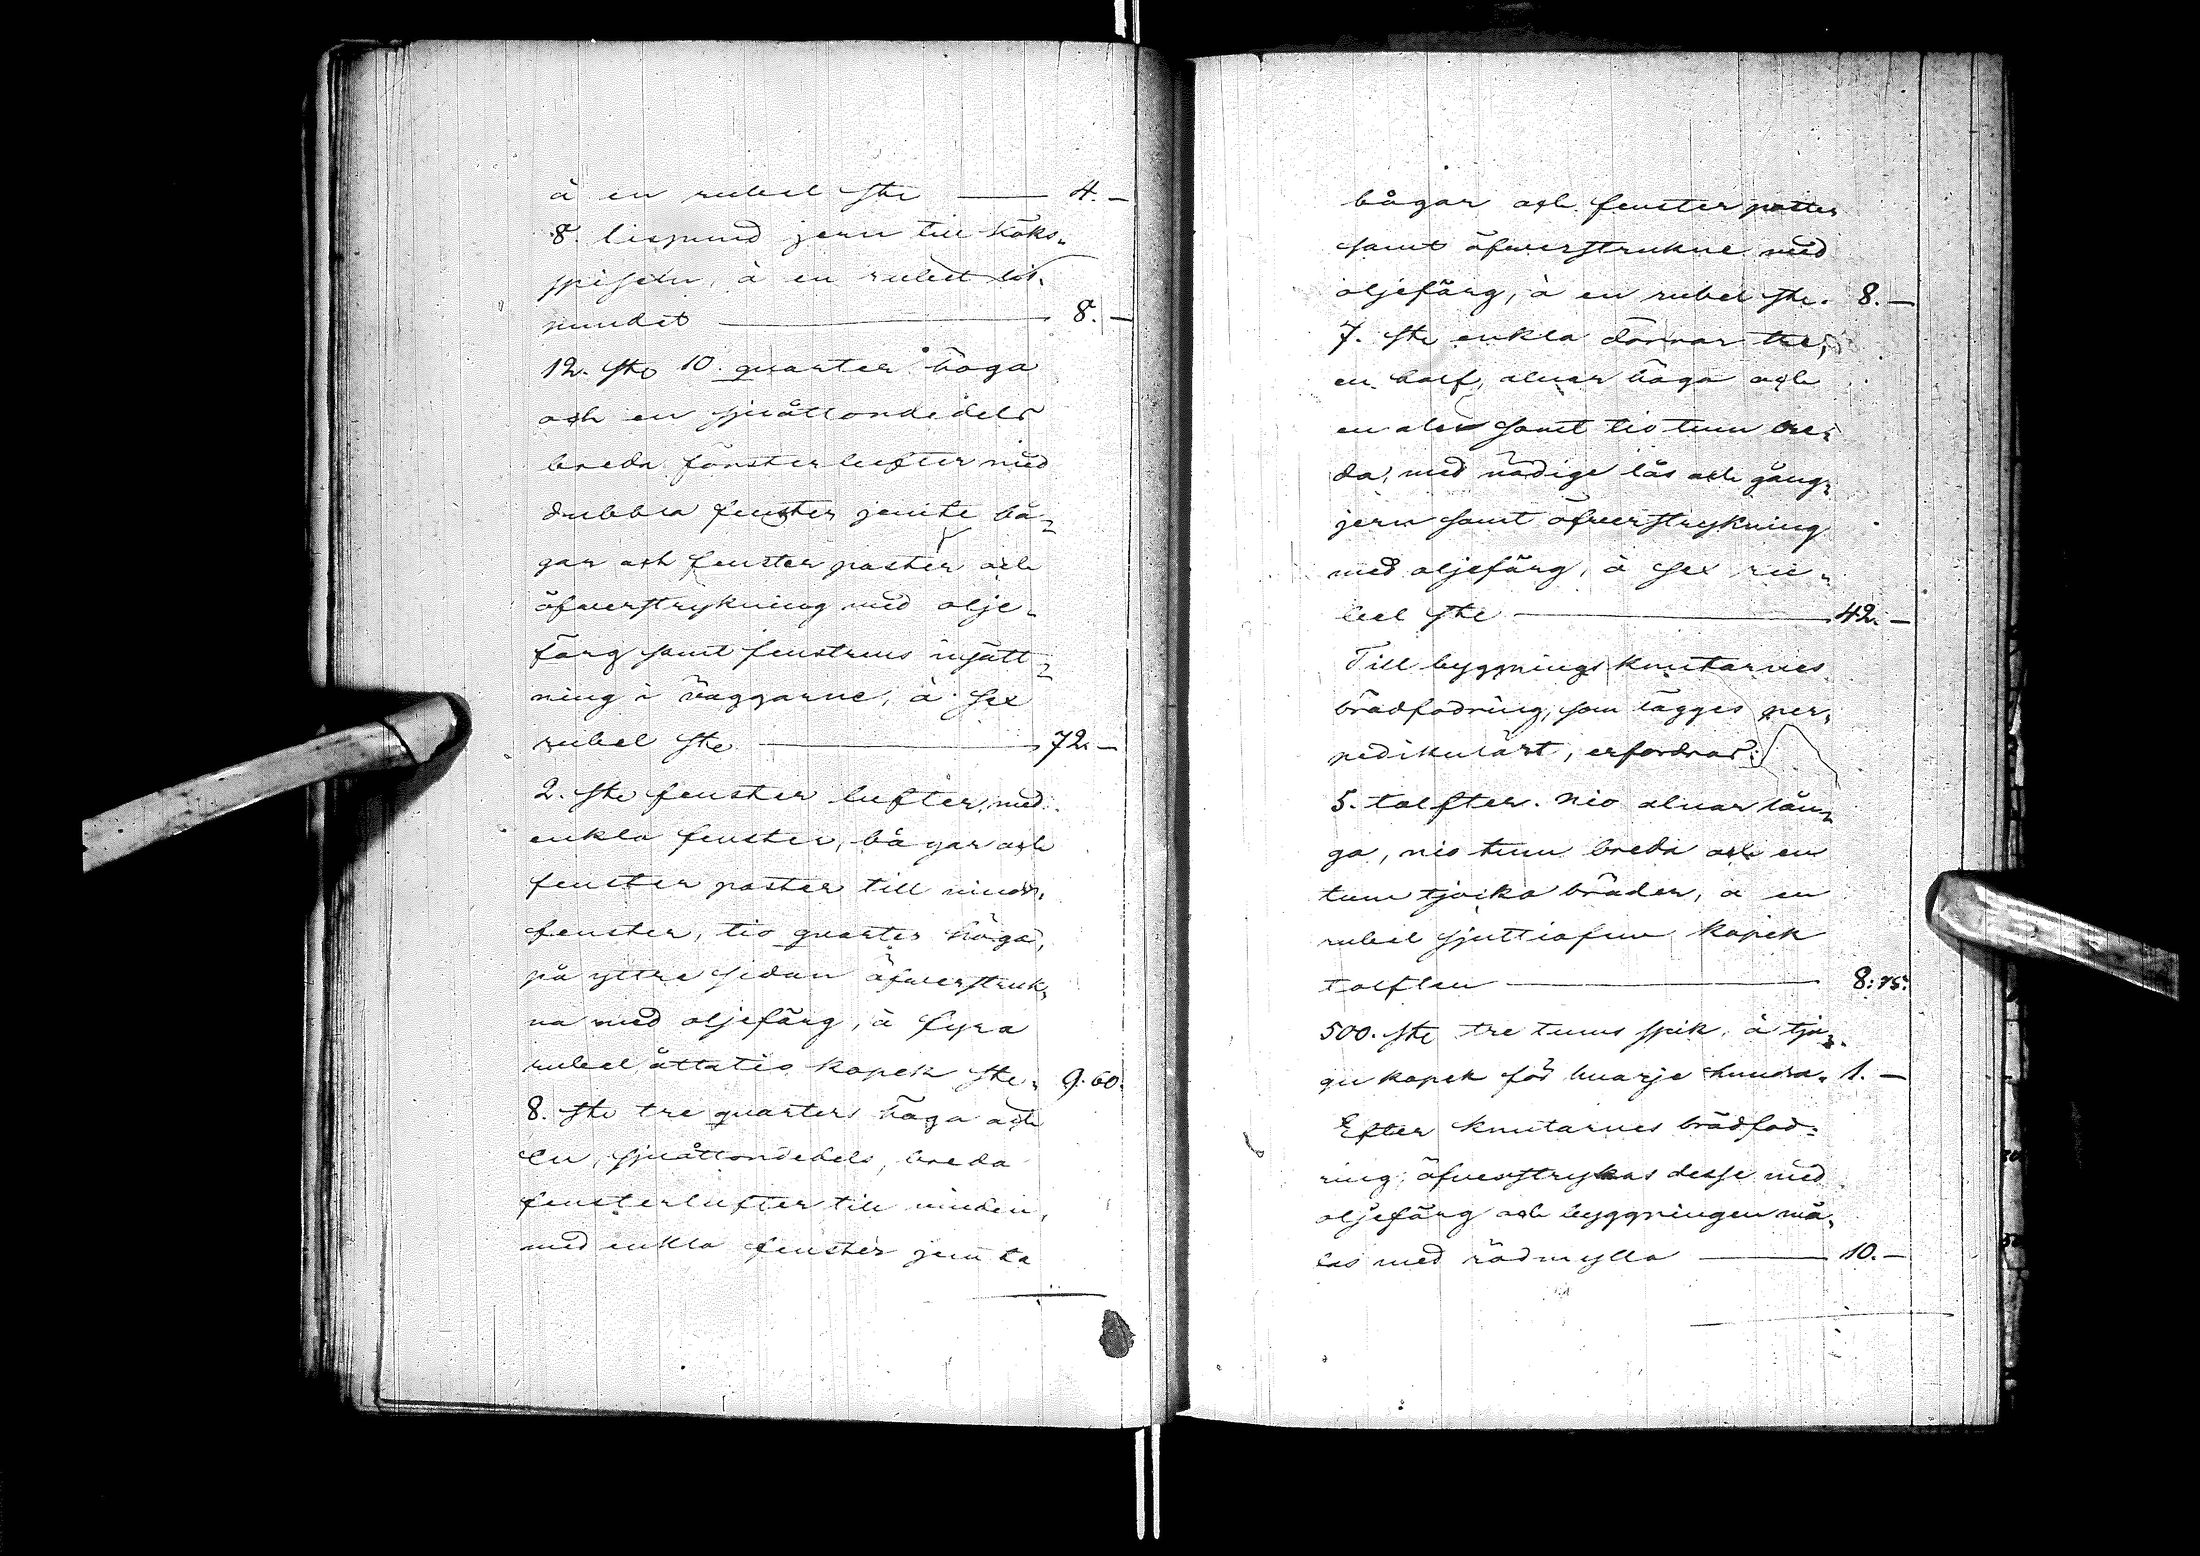 à en rubel ste — 4. —
8. lispund jern till köks-
spiseln, à en rubel lis-
pundet — 8. —
12. ste 10. quarter höga
och en sjuåttondedels
breda fönsterlufter med
dubbla fenster jemte bå-
gar och fenster poster och
öfverstrykning med olje-
färg samt fenstrens insätt-
ning i väggarne, à sex
rubel ste — 72. —
2. ste fenster lufter, med
enkla fenster, bågar och
fenster poster till vinds-
fenster, tio quarter höga,
på yttre sidan öfverstruk-
na med oljefärg, à fyra
rubel åttatio kopek ste. 9. 60.
8. ste tre quarter höga och
en sjuåttondedels, breda
fensterlufter till vinden,
med enkla fenster jemte
bågar och fenster poster
samt öfverstrukne med
oljefärg, à en rubel ste. 8. —
7. ste enkla dörrar tre,
en half, alnar höga och
en aln samt tio tum bre-
da, med nödige lås och gång-
jern samt öfverstrykning
med oljefärg, à sex ru-
bel ste — 42. —
Till byggnings knutarnes
brädfodring, som lägges per-
pedikulärt, erfordras:
5. tolfter. nio alnar lån-
ga, nio tum breda och en
tum tjocka bräder, a en
rubel sjuttiofem kopek
tolften — 8: 75.
500. ste tre tums spik, à tju-
gu kopek för hvarje hundra. 1. —
Efter knutarnes brädfod-
ring, öfverstrykas desse med
oljefärg och byggningen må-
las med rödmylla — 10. —